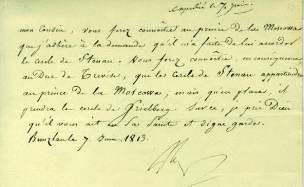 expédié le 7 juin
mon Cousin, vous ferez connaître au prince de la Moscowa
que j'adhère à la demande qu'il m'a faite de lui accorder
le cercle de Steinau. Vous ferez connaître, en conséquence,
au Duc de Trévise, que le cercle de Steinau appartiendra
au prince de la Moscowa, mais qu'en place, il
prendra le cercle de. Sur ce, je prie Dieu
qu'il vous ait en Sa Sainte et digne garde.
Bunzlau le 7 Juin 1813.